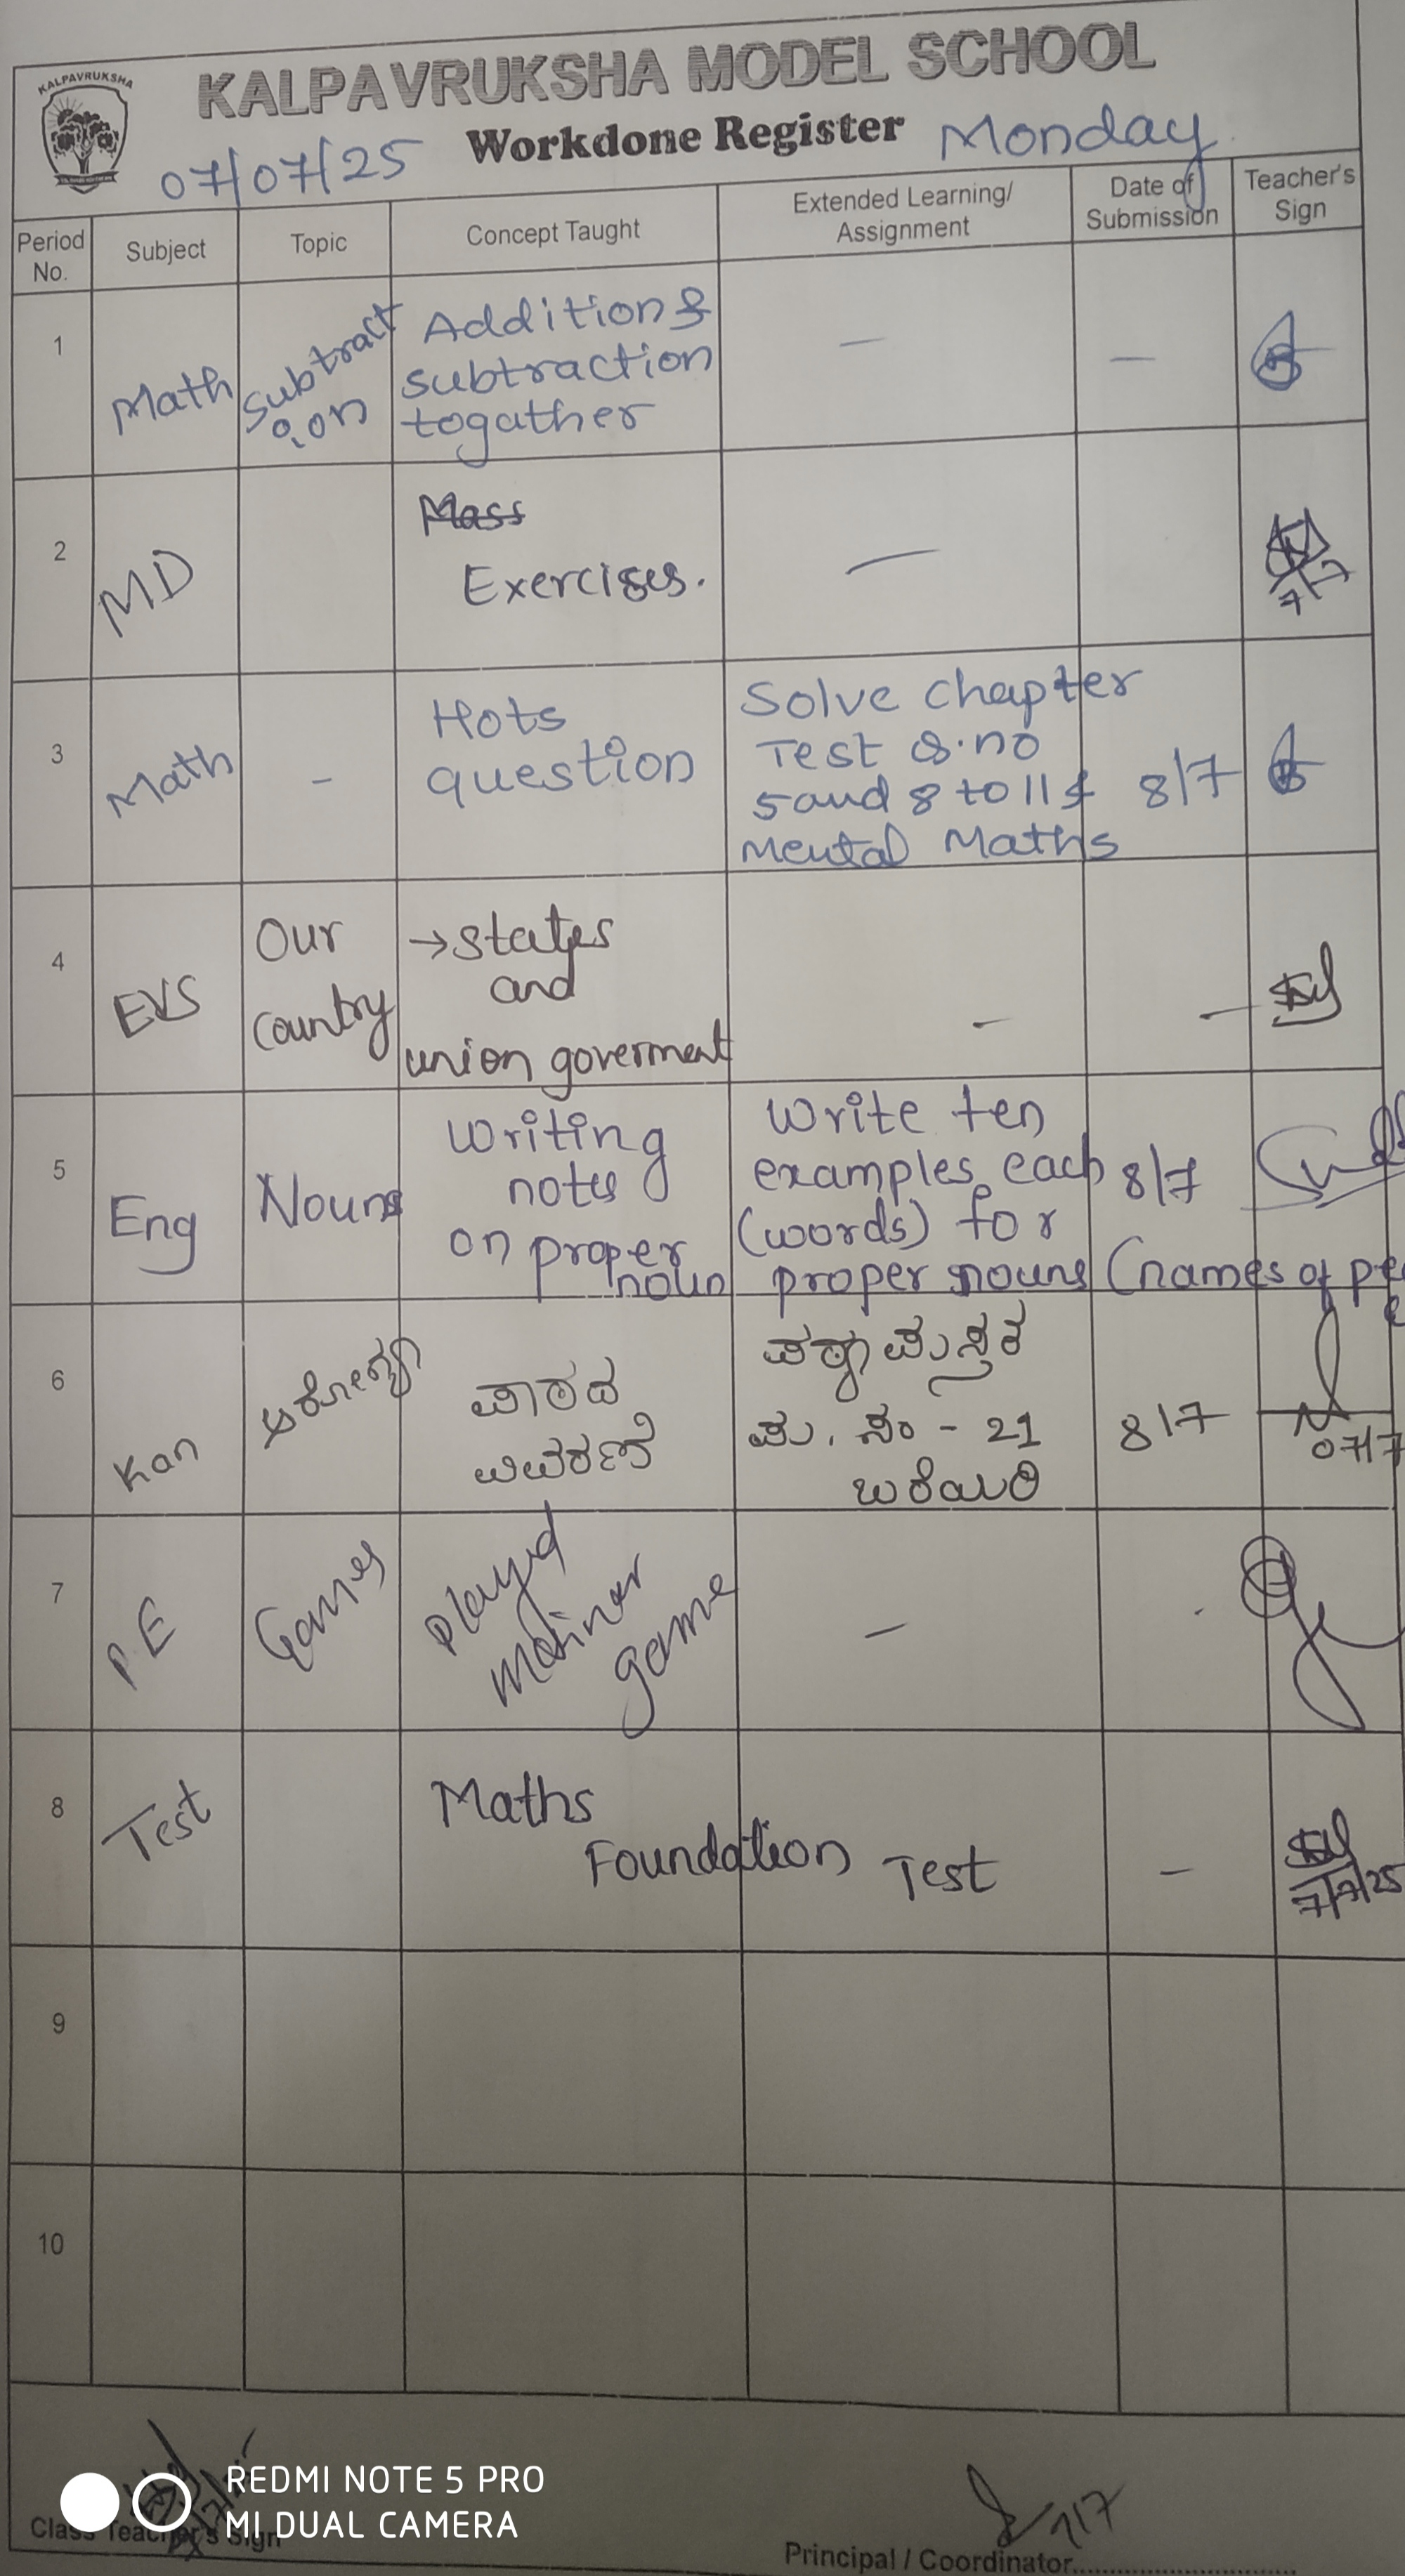 KALPAVRUKSHA
KALPAVRUKSHA MODEL SCHOOL
07/07/25 Workdone Register Monday
Period No. Subject Topic Concept Taught Extended Learning/ Assignment Date of Submission Teacher's Sign
1 Math subtract ion Addition & subtraction togather — —
2 MD Mass Exercises. —
7/7
3 Math - Hots question Solve chapter Test Q.no 5 and 8 to 11 & Mental Maths 8/7
4 EVS Our country → states and union goverment - -
5 Eng Nouns writing notes on proper noun Write ten examples each (words) for proper nouns (names of 8/7
6 Kan ಆರೋಗ್ಯ ಪಾಠದ ವಿವರಣೆ ಪಠ್ಯಪುಸ್ತಕ ಪು. ಸಂ - 21 ಬರೆಯಿರಿ 8/7
07/7
7 P.E Games played game —
8 Test Maths Foundation Test —
7/7/25
9
10
REDMI NOTE 5 PRO
MI DUAL CAMERA
Class Teacher's Sign
7/7
Principal / Coordinator